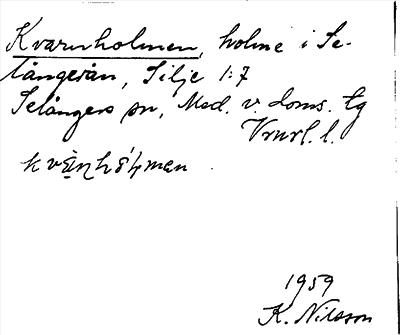 Kvarnholmen, holme i Se-
långersån, Silje 1:7
Selångers sn, Med. v. doms. tg
Vrurl. l.
kvạ̈ɳhɔ́ḷmen
1959
K. Nilsson